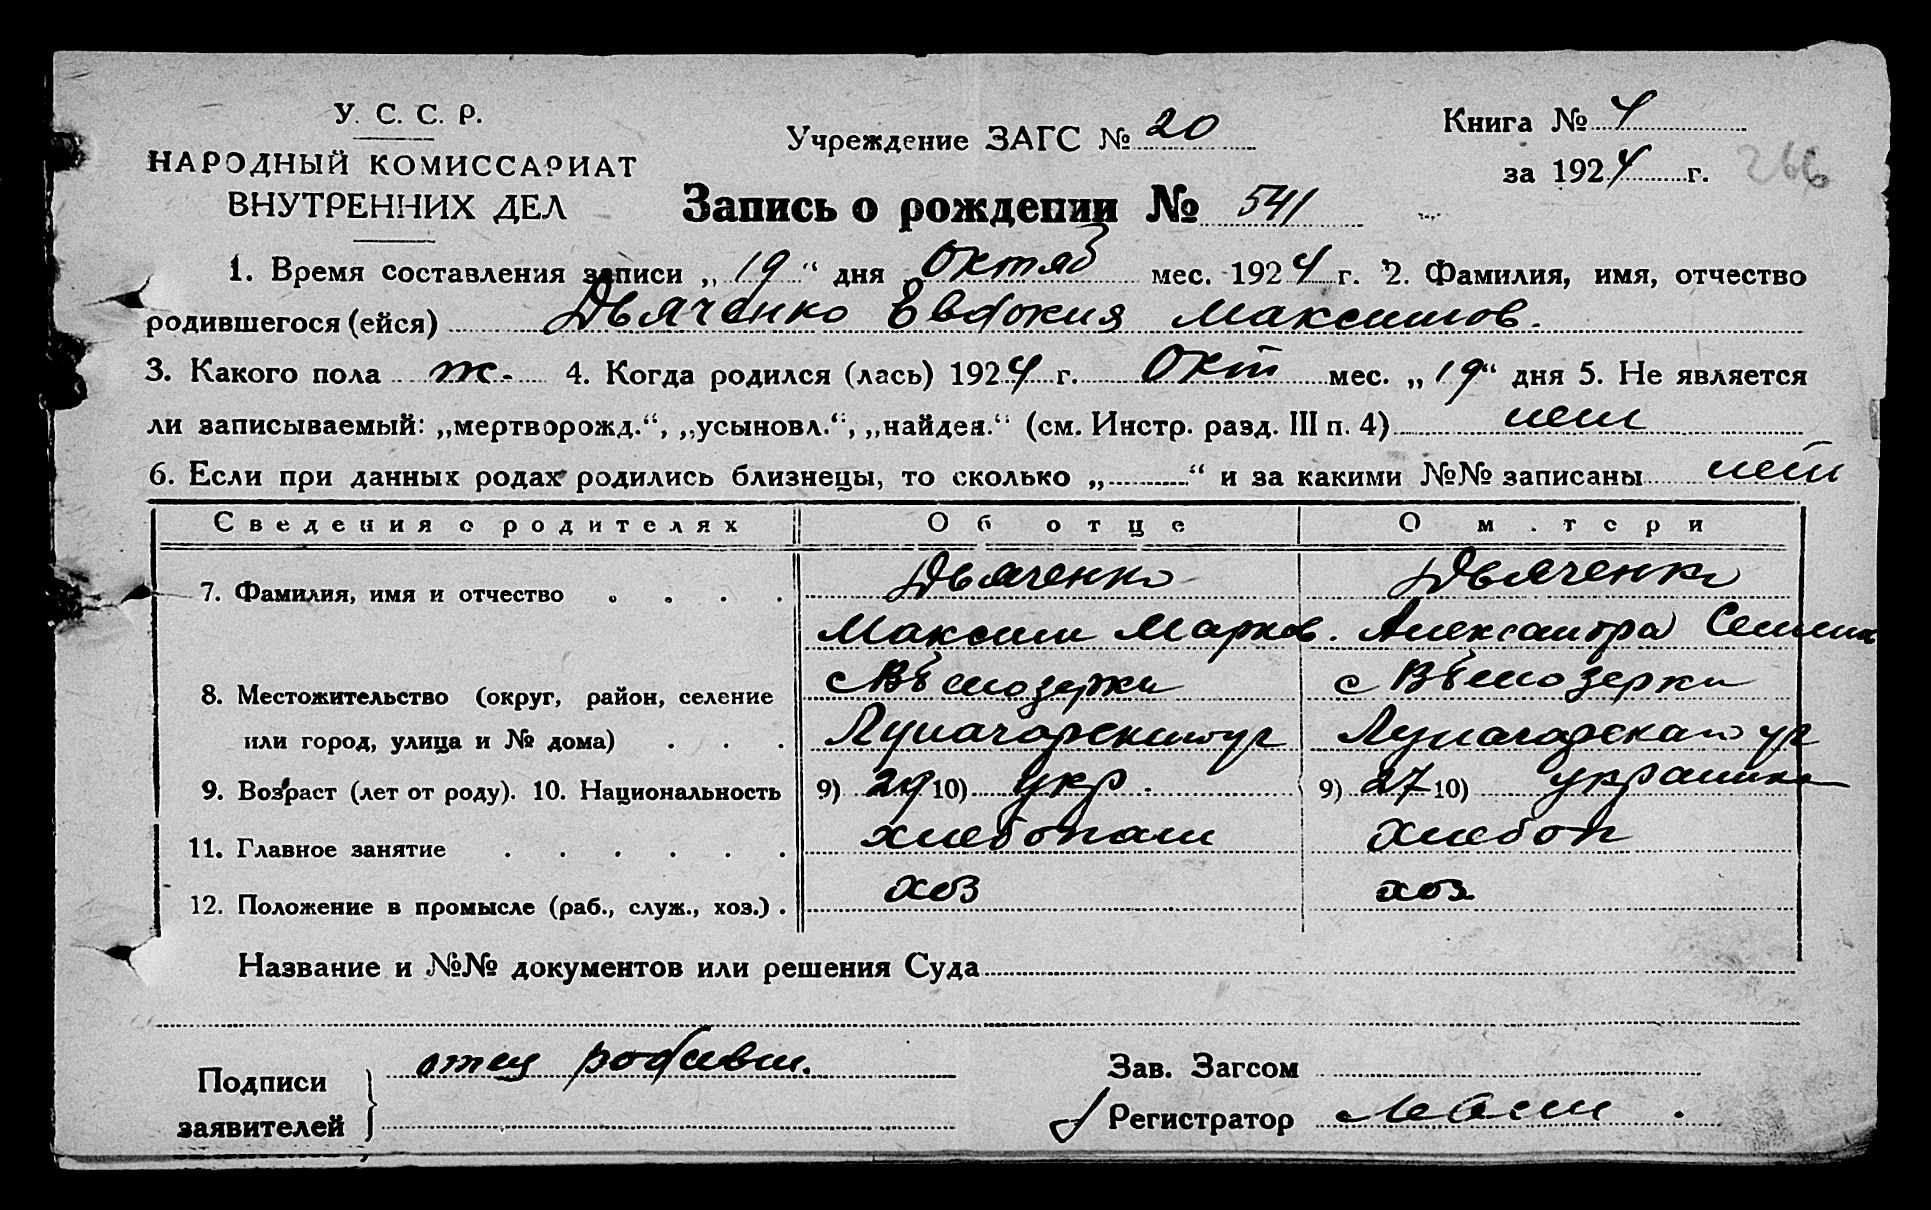 У. С. С. Р.
НАРОДНЫЙ КОМИССАРИАТ
ВНУТРЕННИХ ДЕЛ
Учреждение ЗАГС № 20
Книга № 4
за 1924 г.
266
Запись о рождении № 541
1. Время составления записи „19“ дня Октяб мес. 1924 г. 2. Фамилия, имя, отчество
родившегося (ейся) Дьяченко Евдокия Максимов.
3. Какого пола ж. 4. Когда родился (лась) 1924 г. Окт мес. „19“ дня 5. Не является
ли записываемый: „мертворожд.“, „усыновл.“, „найден.“ (см. Инстр. разд. III п. 4) нет
6. Если при данных родах родились близнецы, то сколько „ “ и за какими №№ записаны нет
Сведения о родителях Об отце О м.тери
7. Фамилия, имя и отчество . . . . Дьяченко Дьяченко
Максим Марков. Александра
8. Местожительство (округ, район, селение с Белозерки с Белозерки
или город, улица и № дома) . . .
9. Возраст (лет от роду). 10. Национальность 9) 29 10) укр. 9) 27 10) украинка
11. Главное занятие . . . . . . хлебопаш хлебоп
12. Положение в промысле (раб., служ., хоз.) . хоз хоз
Название и №№ документов или решения Суда
Подписи
заявителей
отец
Зав. Загсом
Регистратор